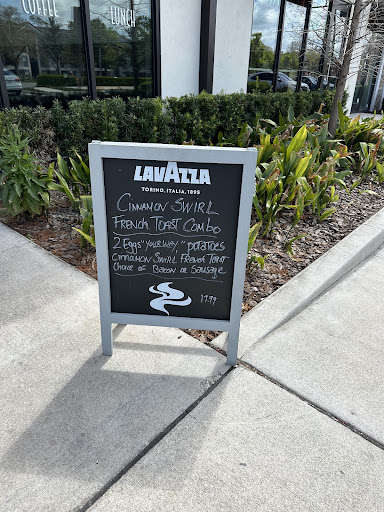 COFFEE
LUNCH
LAVAZZA
TORINO, ITALIA, 1895
CINNAMON SWIRL
FRENCH TOAST COMBO
2 Eggs "YOUR WAY," POTATOES
CINNAMON SWIRL FRENCH TOAST
CHOICE OF BACON OR SAUSAGE
17.99